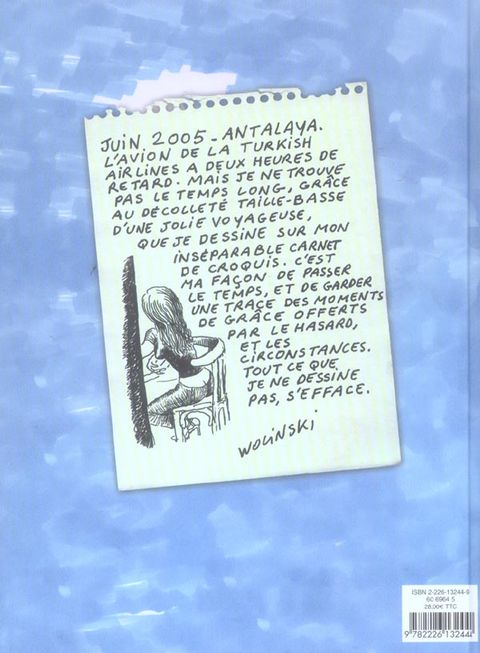 JUIN 2005_ANTALAYA.
L'AVION DE LA TURKISH
AIRLINES A DEUX HEURES DE
RETARD. MAIS JE NE TROUVE
PAS LE TEMPS LONG, GRÂCE
AU DÉCOLLETÉ TAILLE-BASSE
D'UNE JOLIE VOYAGEUSE,
QUE JE DESSINE SUR MON
INSÉPARABLE CARNET
DE CROQUIS. C'EST
MA FAÇON DE PASSER
LE TEMPS, ET DE GARDER
UNE TRACE DES MOMENTS
DE GRÂCE OFFERTS
PAR LE HASARD,
ET LES
CIRCONSTANCES.
TOUT CE QUE
JE NE DESSINE
PAS, S'EFFACE.
WOLINSKI
ISBN 2-226-13244-9
60 6964 5
28,00€ TTC
9 782226 132444